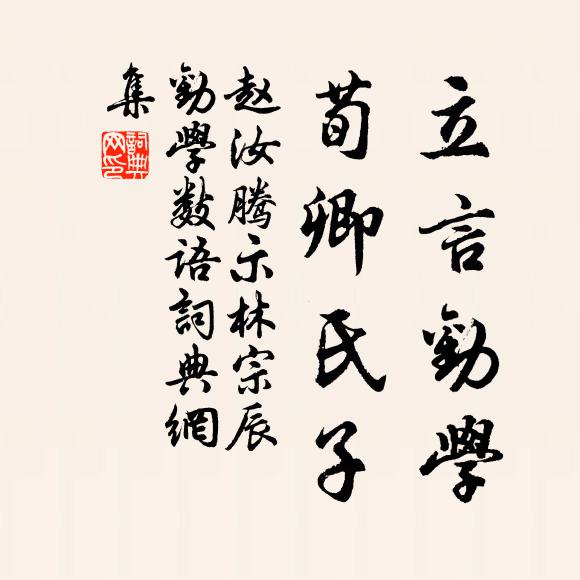 立言勸學
荀卿氏子
赵汝腾示林宗辰
勸學數語詞典網
集
詞典网印